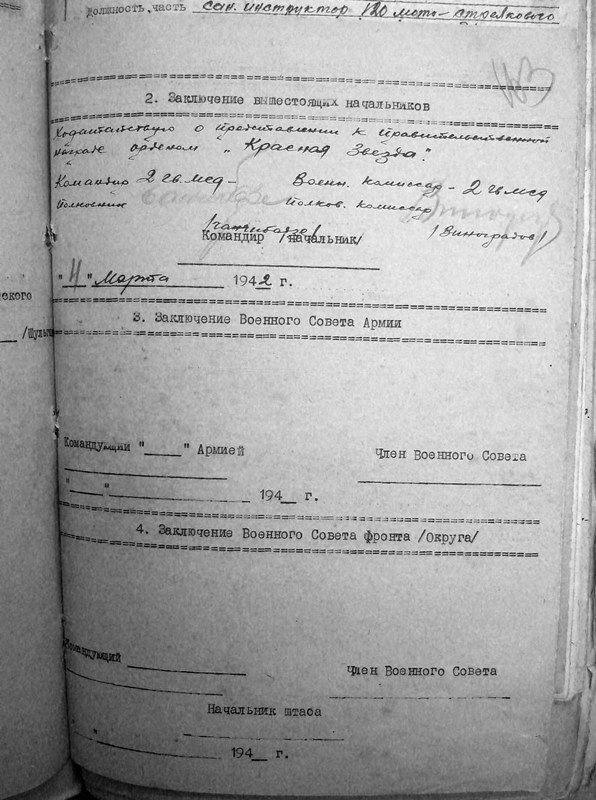 должность, часть сан. инструктор 120 мото-стрелкового
2. Заключение вышестоящих начальников
Ходатайствую о представлении к правительственной
награде орденом "Красная Звезда".
Командир 2 гв. мсд - Военн. комиссар - 2 гв мсд
Полковник Полков. комиссар
Командир /начальник/ /Виноградов/
"4" Марта 1942 г.
3. Заключение Военного Совета Армии
ского
/Шульг
Командующий "____" Армией Член Военного Совета
"____" ____ 194_ г.
4. Заключение Военного Совета фронта /Округа/
Командующий
Член Военного Совета
Начальник штаба
" 194_ г.